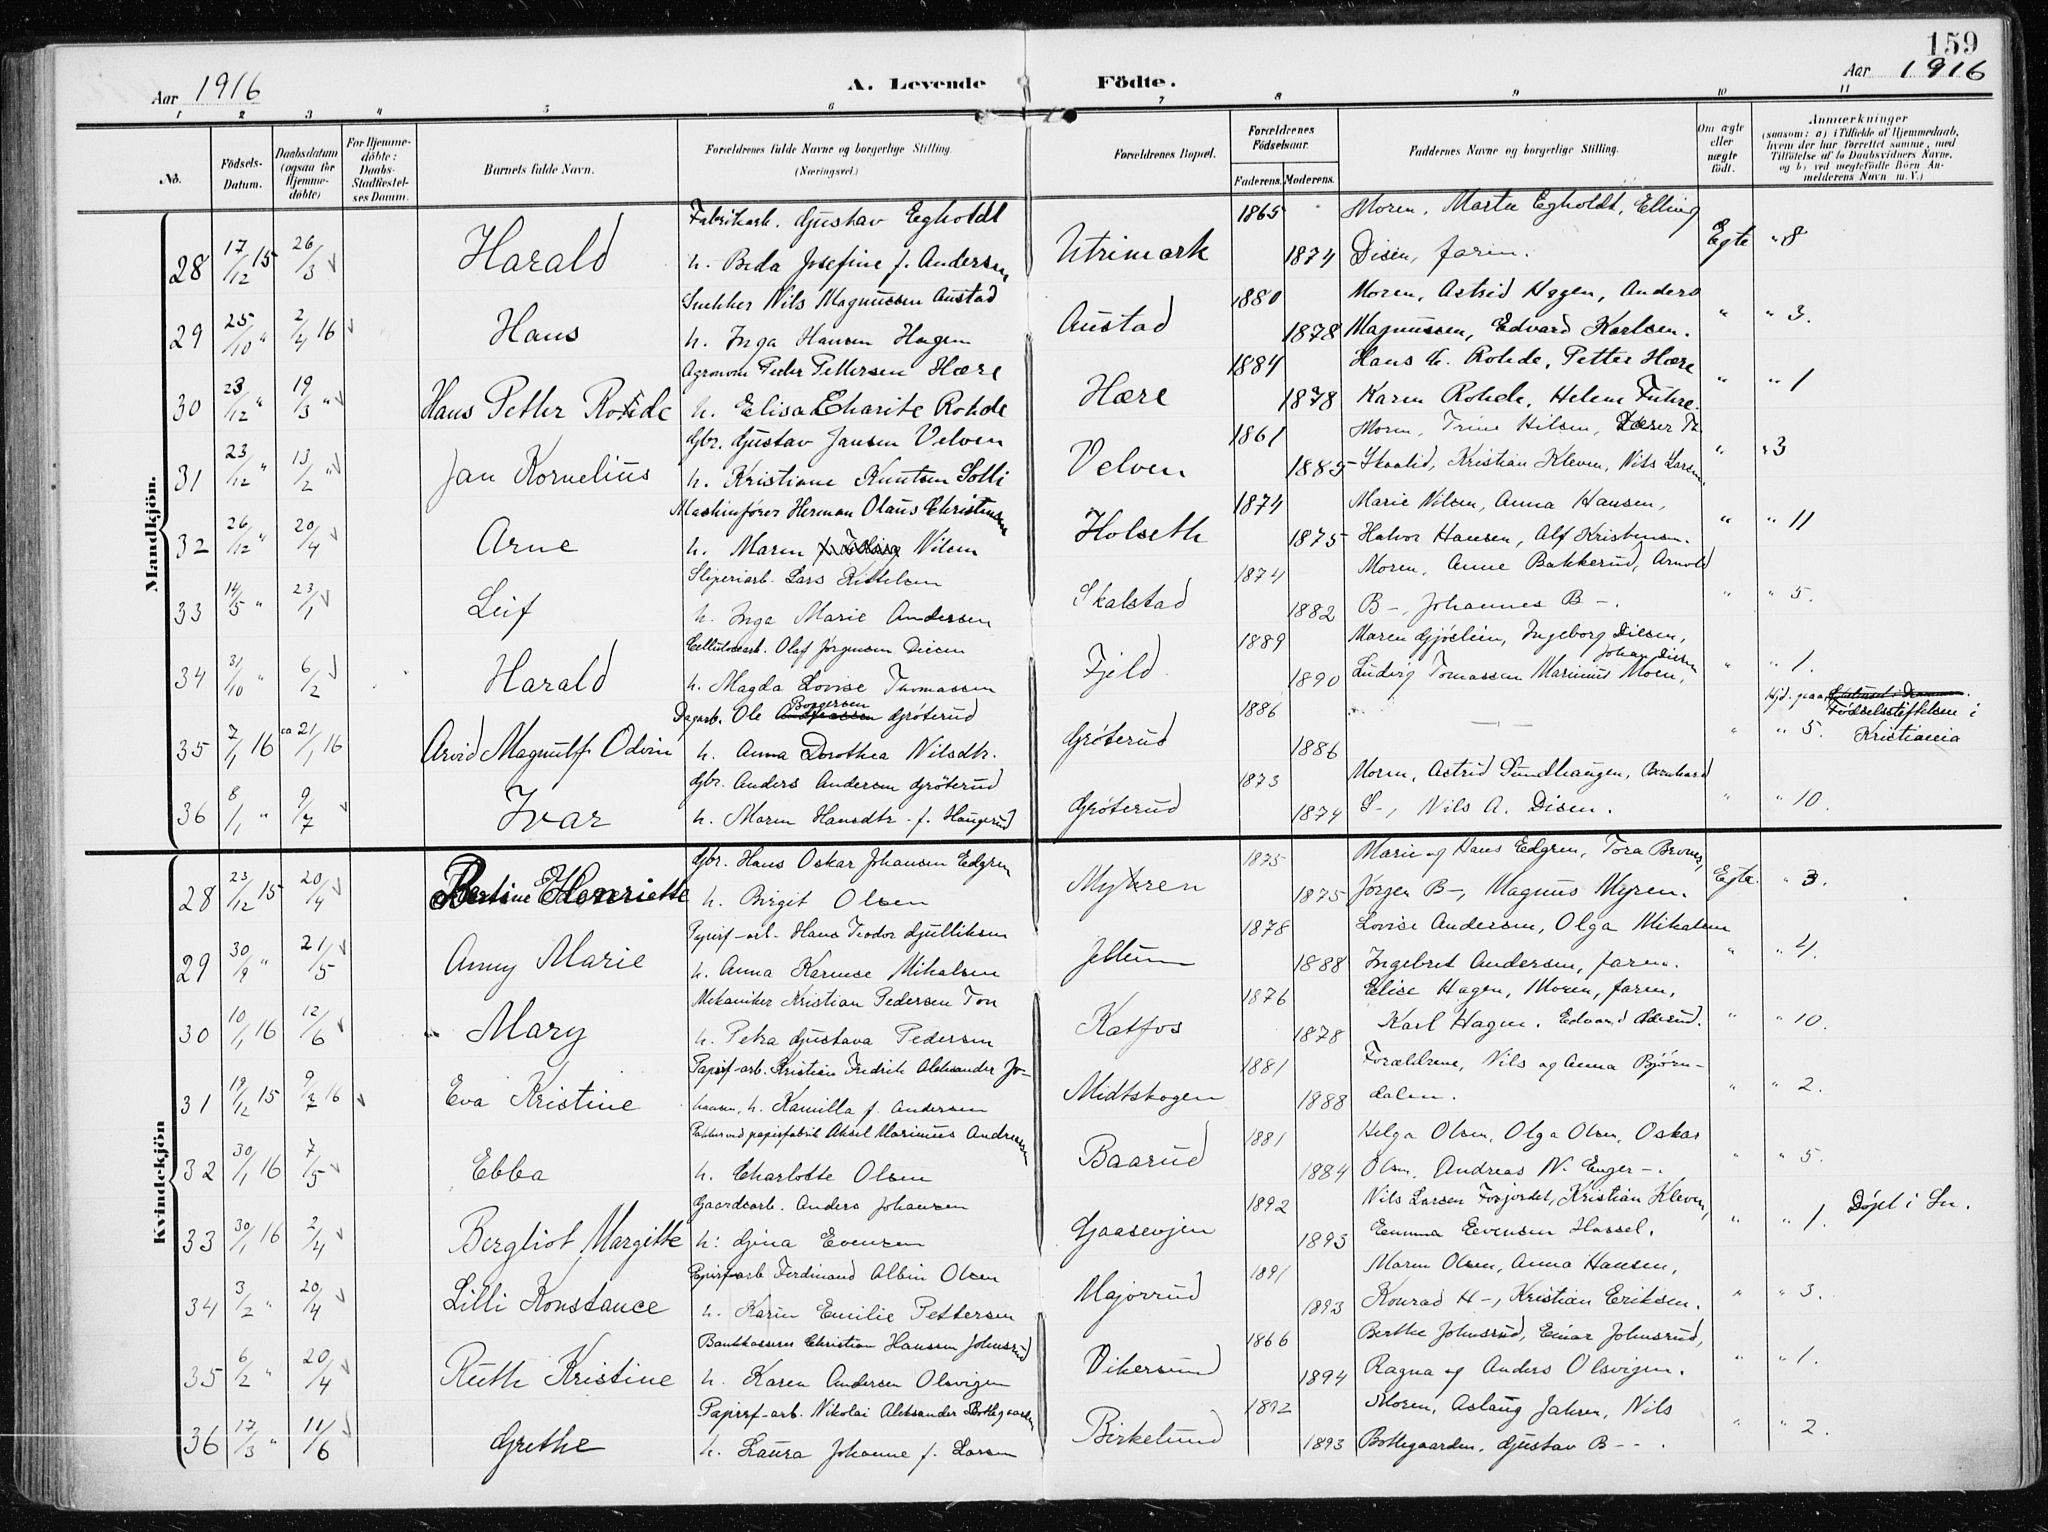 159
Aar 1916
A. Levende Födte.
Aar 1916
1 2 3 4 5 6 7 8 9 10 11
No.
Födsels-Datum.
Daabsdatum (ogsaa for Hjemme-döbte)
For Hjemme-döbte: Daabs-Stadfæstel-ses Datum.
Barnets fulde Navn.
Forældrenes fulde Navne og borgerlige Stilling. (Næringsvei.)
Forældrenes Bopæl.
Forældrenes Födselsaar.
Faderens. Moderens.
Faddernes Navne og borgerlige Stilling.
Om ægte eller uægte födt.
Anmærkninger
(saasom: a) i Tilfælde af Hjemmedaab,
hvem der har forrettet samme, med
Tilföielse af to Daabsvidners Navne.
og b) ved uægtefödte Börn An-
melderens Navn m. V.)
Mandkjön.
Fabrikarb. Gustav Egholdt 1865 Moren, Martu Egholdt, Elling
28 17/12 15 26/3 Harald h. Beda Josefine f. Andersen Utrimark 1874 Disen, faren. Egte " 8
Snekker Nils Magnussen Austad 1880 Moren, Astrid Hagen, Anders
29 25/10 " 2/4 16 Hans h. Inga Hansen Hagen Austad 1878 Magnussen, Edvard Karlsen. " " 3.
Agronom Peder Pettersen Hære 1884 Hans H. Rohde, Petter Hære
30 23/12 " 19/3 " Hans Petter Rohde h. Elisa Charite Rohde Hære 1878 Karen Rohde, Helene Fuhre. " " 1
Gbr. Gustav Jansen Velven 1861 Moren, Trine Nilsen,
31 23/12 " 13/2 " Jan Kornelius h. Kristiane Knutsen Solli Velven 1885 Skaalid, Kristian Kleven, Nils Larsen. " " 3
Maskinfører Herman Olaus Christensen 1874 Marie Nilsen, Anna Hansen,
32 26/12 " 20/4 Arne h. Maren Nilsen Holseth 1875 Halvor Hansen, Alf Kristensen. " " 11
Sliperiarb. Lars Kittelsen 1874 Moren, Anne Bakkerud, Arnold
33 14/5 " 23/1 Leif h. Inga Marie Andersen Skalstad 1882 B-, Johannes B-. " " 5.
Cellulosearb. Olaf Jørgensen Diesen 1889 Maren Gjøslien, Ingeborg Diesen, Johan Diesen
34 31/10 " 6/2 Harald h. Magda Lovise Thomassen Fjeld 1890 Ludvig Tomassen Marinius Moen, " " 1.
Dagarb. Ole Borgersen Grøterud 1886 Hjd. paa Fødselsstiftelsen i
35 7/1 16 ca 21/1 16 Arvid Magnulf Odvin h. Anna Dorothea Nilsdtr. Grøterud 1886 — " " 5. Kristiania
Gbr. Anders Andersen Grøterud 1873 Moren, Astrid Sundhaugen, Bernhard
36 8/1 " 9/7 Ivar h. Maren Hansdtr. f. Haugerud Grøterud 1874 S-, Nils A. Disen. " " 10.
Kvindekjön
Gbr. Hans Oskar Johansen Edgren 1875 Marie og Hans Edgren, Tora Brones,
28 23/12 15 20/4 Bertine Henriette h. Birgit Olsen Myhren 1875 Jørgen B-, Magnus Myren. Egte. " 3.
Papirf-arb. Hans Teodor Gulliksen 1878 Lovise Andersen, Olga Mikalsen
29 30/9 " 21/5 Anny Marie h. Anna Karense Mikalsen Jellum 1888 Ingebret Andersen, faren. " " 4.
Mekaniker Kristian Pedersen Ton 1876 Elise Hagen, Moren, faren,
30 10/1 16 12/6 Mary h. Petra Gustava Pedersen Katfos 1878 Karl Hagen. Edvard Aaserud. " " 10.
Papirf-arb. Kristian Fredrik Aleksander Jo- 1881 Forældrene, Nils og Anna Bjørn-
31 19/12 15 9/7 16 Eva Kristine hansen, h. Kamilla f. Andersen Midtskogen 1888 dalen. " " 2.
Pakker ved papirfabrik Aksel Marinius Andresen 1881 Helga Olsen, Olga Olsen, Oskar
32 30/1 16 7/5 Ebba h. Charlotte Olsen Baarud 1884 Olsen, Andreas N. Enger-. " " 5.
Gaardsarb. Anders Johansen 1892 Nils Larsen Fosjordet, Kristian Kleven,
33 30/1 16 2/4 Bergliot Margitte h. Gina Evensen Gaasevjen 1893 Emma Evensen Hassel. " " 1. Døpt i Sn.
Papirf-arb Ferdinand Albin Olsen 1891 Maren Olsen, Anna Hansen,
34 3/2 " 20/4 Lilli Konstance h. Karin Emilie Pettersen Majorrud 1893 Konrad H-, Kristian Eriksen. " " 3.
Bankkasserer Christian Hanssen Johnsrud 1866 Berthe Johnsrud, Einar Johnsrud,
35 6/2 " 20/4 Ruth Kristine h. Karen Andersen Olsvigen Vikersund 1894 Ragna og Anders Olsvigen. " " 1.
Papirf-arb. Nikolai Aleksander Bottegaarden 1892 Moren, Aslaug Jahren, Nils
36 17/3 " 11/6 Grethe h. Laura Johanne f. Larsen Birkelund 1893 Bottegaarden, Gustav B--. " " 2.